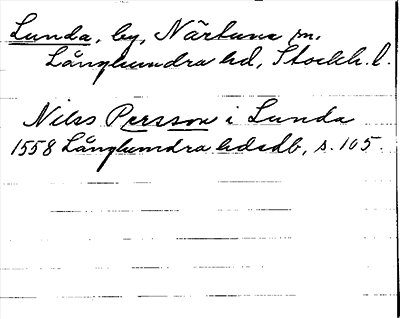 Lunda, by, Närtuna sn.
Långhundra hd, Stockh. l.
Nils Persson i Lunda
1558 Långhundra hdsdb, s. 105.